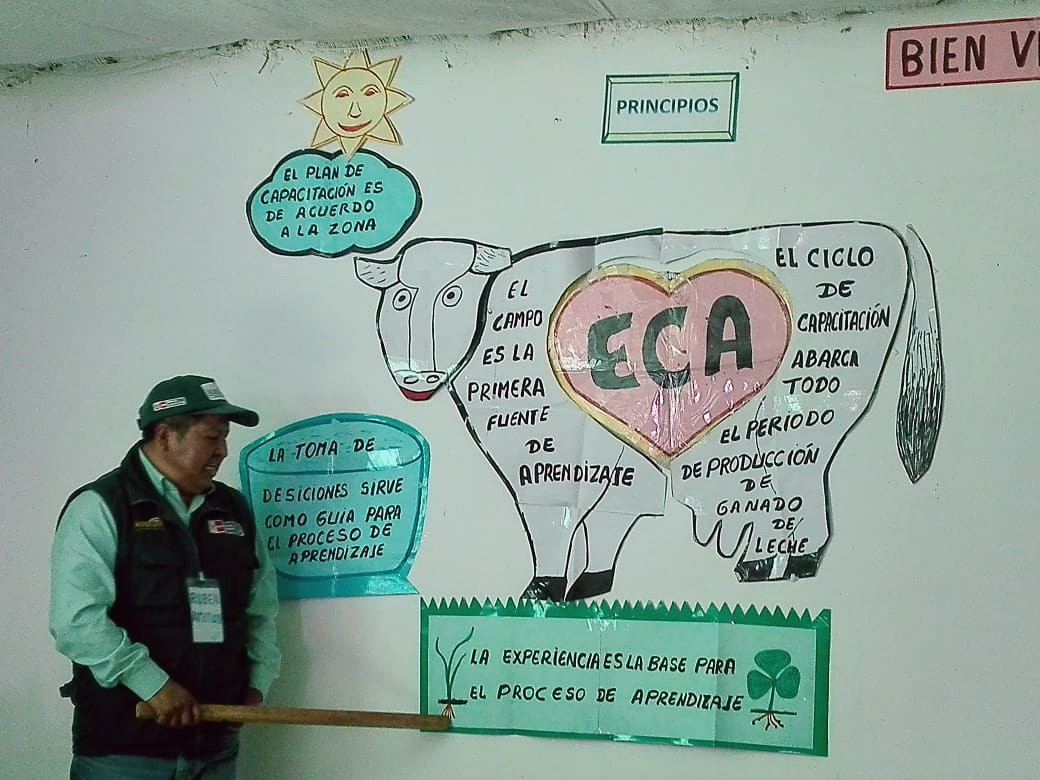 BIEN VE
PRINCIPIOS
EL PLAN DE
CAPACITACIÓN ES
DE ACUERDO
A LA ZONA
EL
CAMPO
ES LA
PRIMERA
FUENTE
DE
APRENDIZAJE
ECA
EL CICLO
DE
CAPACITACIÓN
ABARCA
TODO
EL PERÍODO
DE PRODUCCIÓN
DE
GANADO
DE
LECHE
LA TOMA DE
DESICIONES SIRVE
COMO GUÍA PARA
EL PROCESO DE
APRENDIZAJE
LA EXPERIENCIA ES LA BASE PARA
EL PROCESO DE APRENDIZAJE
RUBEN